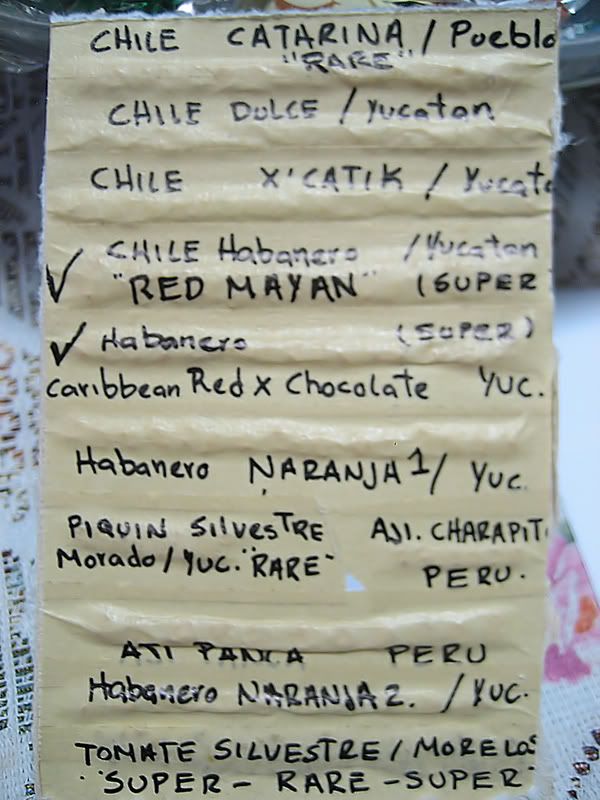 CHILE CATARINA / Pueblo
"RARE"
CHILE DULCE / Yucatan
CHILE X'CATIK / Yucata
CHILE Habanero / Yucatan
"RED MAYAN" (SUPER
Habanero (SUPER)
Caribbean Red X Chocolate YUC.
Habanero NARANJA 1 / YUC.
PIQUIN SILVESTRE
Morado / YUC. "RARE"
AJI. CHARAPIT
PERU.
AJI PANCA PERU
Habanero NARANJA 2. / YUC.
TOMATE SILVESTRE / MORELOS
"SUPER - RARE - SUPER"